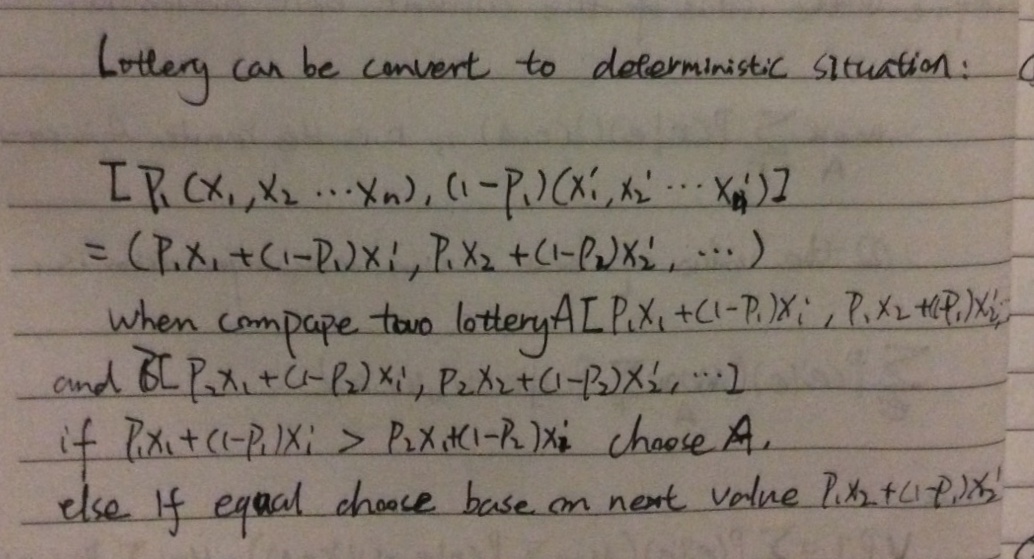 Lottery can be convert to deterministic situation:
[P₁(X₁,X₂…Xn),(1-P₁)(X₁',X₂'…Xn')]
=(P₁X₁+(1-P₁)X₁',P₁X₂+(1-P₂)X₂',…)
when compape two lottery A[P₁X₁+(1-P₁)X₁',P₁X₂+(1-P₁)X₂',
and B[P₂X₁+(1-P₂)X₁',P₂X₂+(1-P₂)X₂',…]
if P₁X₁+(1-P₁)X₁' > P₂X₁+(1-P₂)X₁' choose A.
else If equal choose base on next value P₁X₂+(1-P₁)X₂'